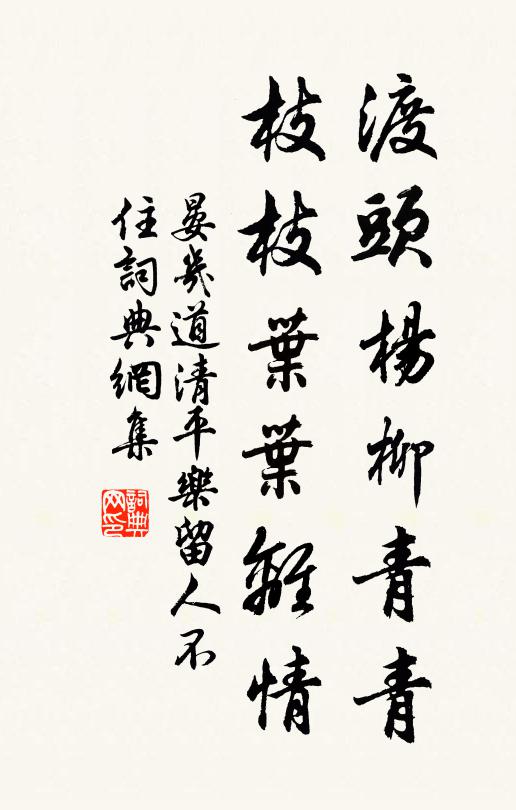 渡頭楊柳青青
枝枝葉葉離情
晏幾道清平樂留人不
住詞典網集
詞典
网印